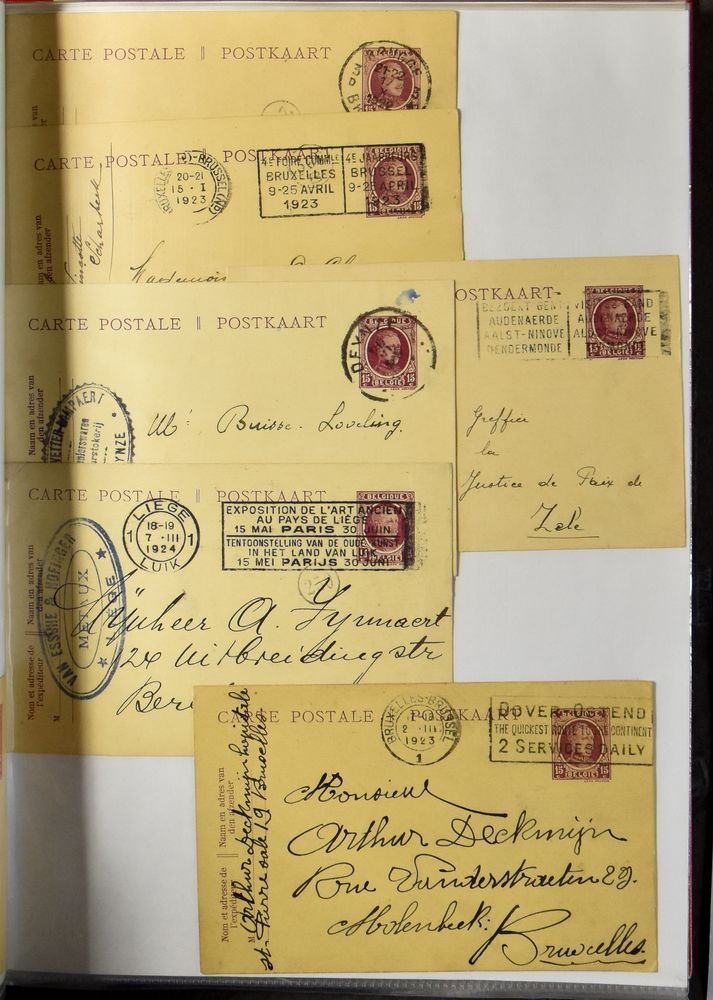 CARTE POSTALE || POSTKAART
21-22
CARTE POSTALE || POSTKAART
BRUXELLES (N)-BRUSSEL (N)
20-21
15 - I
1923
4E FOIRE COMMLE
BRUXELLES
9-25 AVRIL
1923
4E JAARBEURS
BRUSSEL
9-25 APRIL
1923
BELGIQUE
15 15
en adres van
den afzender
CARTE POSTALE || POSTKAART
BELGIQUE
15 15
BELGIË
Naam en adres van
den afzender
Mr Buisse-Loveling.
POSTKAART
BEZOEKT GENT
AUDENAERDE
AALST-NINOVE
DENDERMONDE
BELGIQUE
15 15
BELGIË
Greffier
la
Justice de Paix de
Zele
CARTE POSTALE || POSTKAART
LIEGE
1 1
18-19
7 - III
1924
LUIK
EXPOSITION DE L'ART ANCIEN
AU PAYS DE LIÈGE
15 MAI PARIS 30 JUIN
TENTOONSTELLING VAN DE OUDE KUNST
IN HET LAND VAN LUIK
15 MEI PARIJS 30 JUNI
BELGIQUE
VAN ESSCHE & HOFINGER
METAUX
LIEGE
Nom et adresse de
l'expéditeur
Naam en adres van
den afzender
M
Mijnheer A.
24 Uitbreidingstr
CARTE POSTALE || POSTKAART
BRUXELLES-BRUSSEL
2 - III
1923
1
DOVER-OSTEND
THE QUICKEST ROUTE TO THE CONTINENT
2 SERVICES DAILY
15 15
BELGIË
Nom et adresse de
l'expéditeur
Naam en adres van
den afzender
M
Arthur Deckmijn hopitale
st. Pierre sale 19 Bruxelles
Monsieur
Arthur Deckmijn
Rue Vanderstraeten 29.
Molenbeek.
Bruxelles.